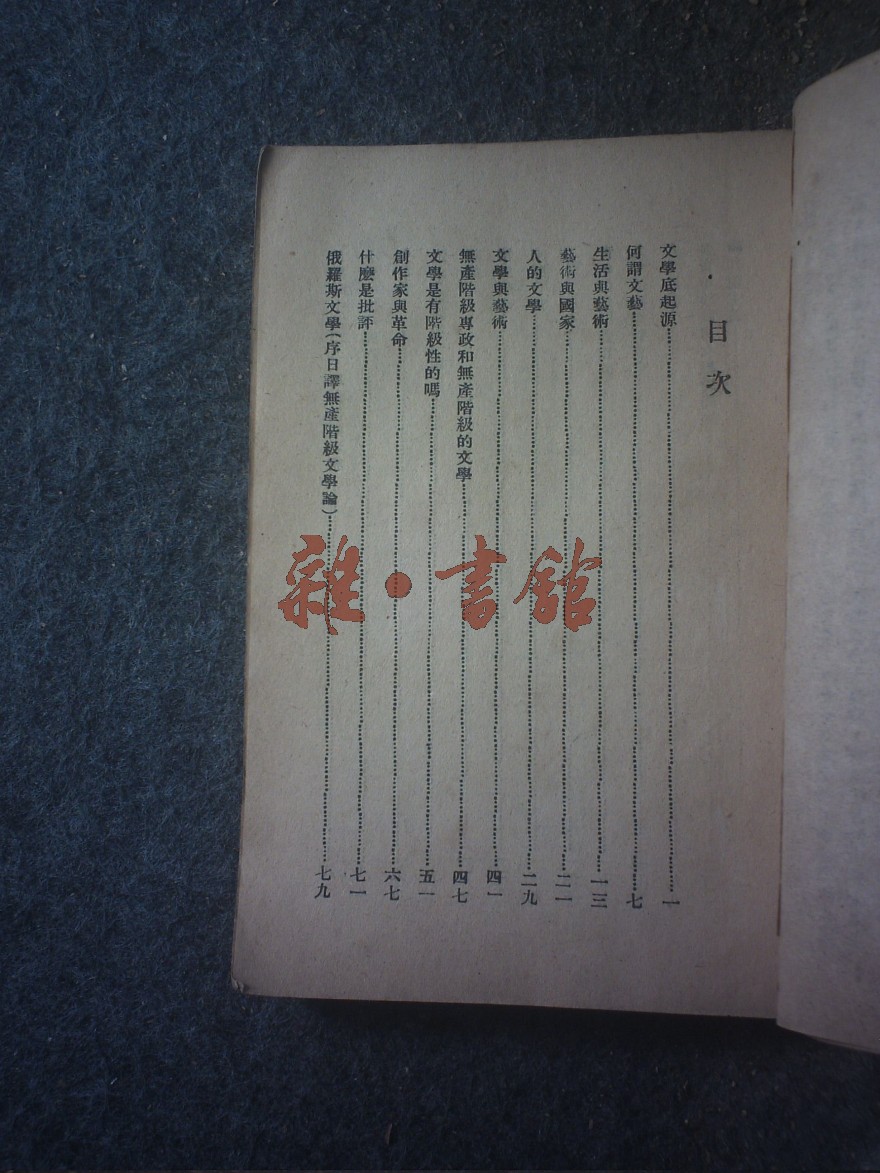 目次
文學底起源……一
何謂文藝……七
生活與藝術……一三
藝術與國家……二一
人的文學……二九
文學與藝術……四一
無產階級專政和無產階級的文學……四七
文學是有階級性的嗎……五一
創作家與革命……六七
什麽是批評……七一
俄羅斯文學(序日譯無產階級文學論)……七九
雜·書館